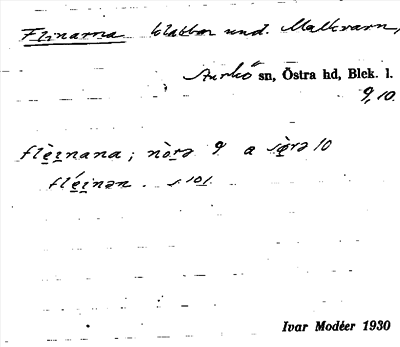 Flinarna klabbar und. Malkvarn,
Sturkö sn, Östra hd, Blek. l.
9, 10.
flèi̠nana; nò̠rə 9 a sø̠̀rə 10
fléi̠nən. s. 101.
Ivar Modéer 1930